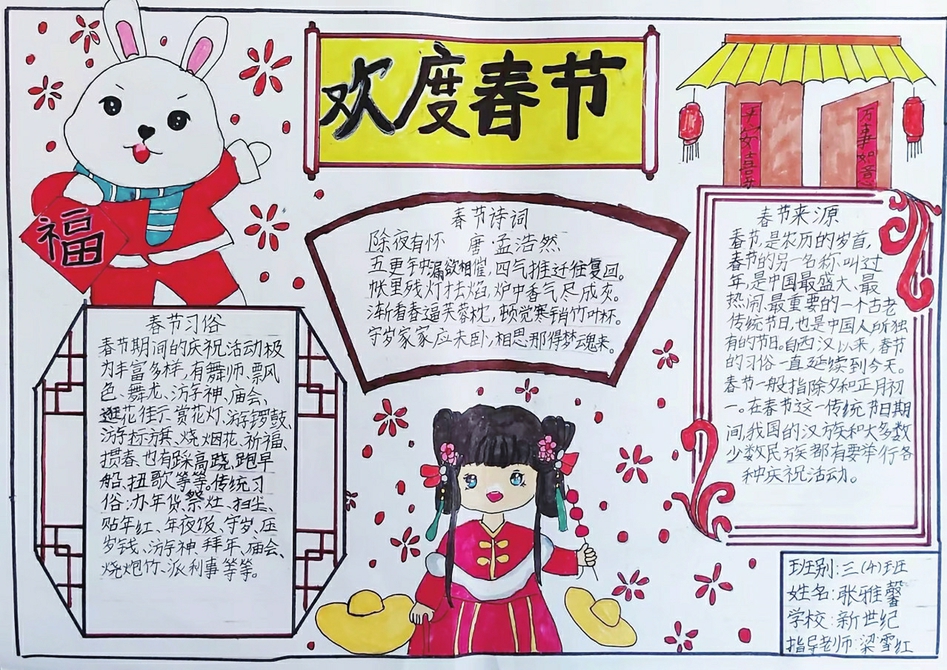 欢度春节
福
万事如意
春节诗词
除夜有怀 唐孟浩然
五更钟漏欲相催,四气推迁往复回。
帐里残灯才去焰,炉中香气尽成灰。
渐看春逼芙蓉枕,顿觉寒销竹叶杯。
守岁家家应未卧,相思那得梦魂来。
春节习俗
春节期间的庆祝活动极
为丰富多样,有舞师、飘风
色、舞龙、游神、庙会、
逛花街、赏花灯、游锣鼓、
游标旗、烧烟花、祈福、
掼春,也有踩高跷,跑旱
船、扭歌等等。传统习
俗:办年货、祭灶、扫尘、
贴年红、年夜饭、守岁、压
岁钱、游神、拜年、庙会、
烧炮竹、派利事等等。
春节来源
春节,是农历的岁首,
春节的另一名称叫过
年,是中国最盛大、最
热闹、最重要的一个古老
传统节日,也是中国人所独
有的节日。自西汉以来,春节
的习俗一直延续到今天。
春节一般指除夕和正月初
一。在春节这一传统节日期
间,我国的汉族和大多数
少数民族都有要举行各
种庆祝活动。
班别:三(4)班
姓名:张雅馨
学校:新世纪
指导老师:梁雪红